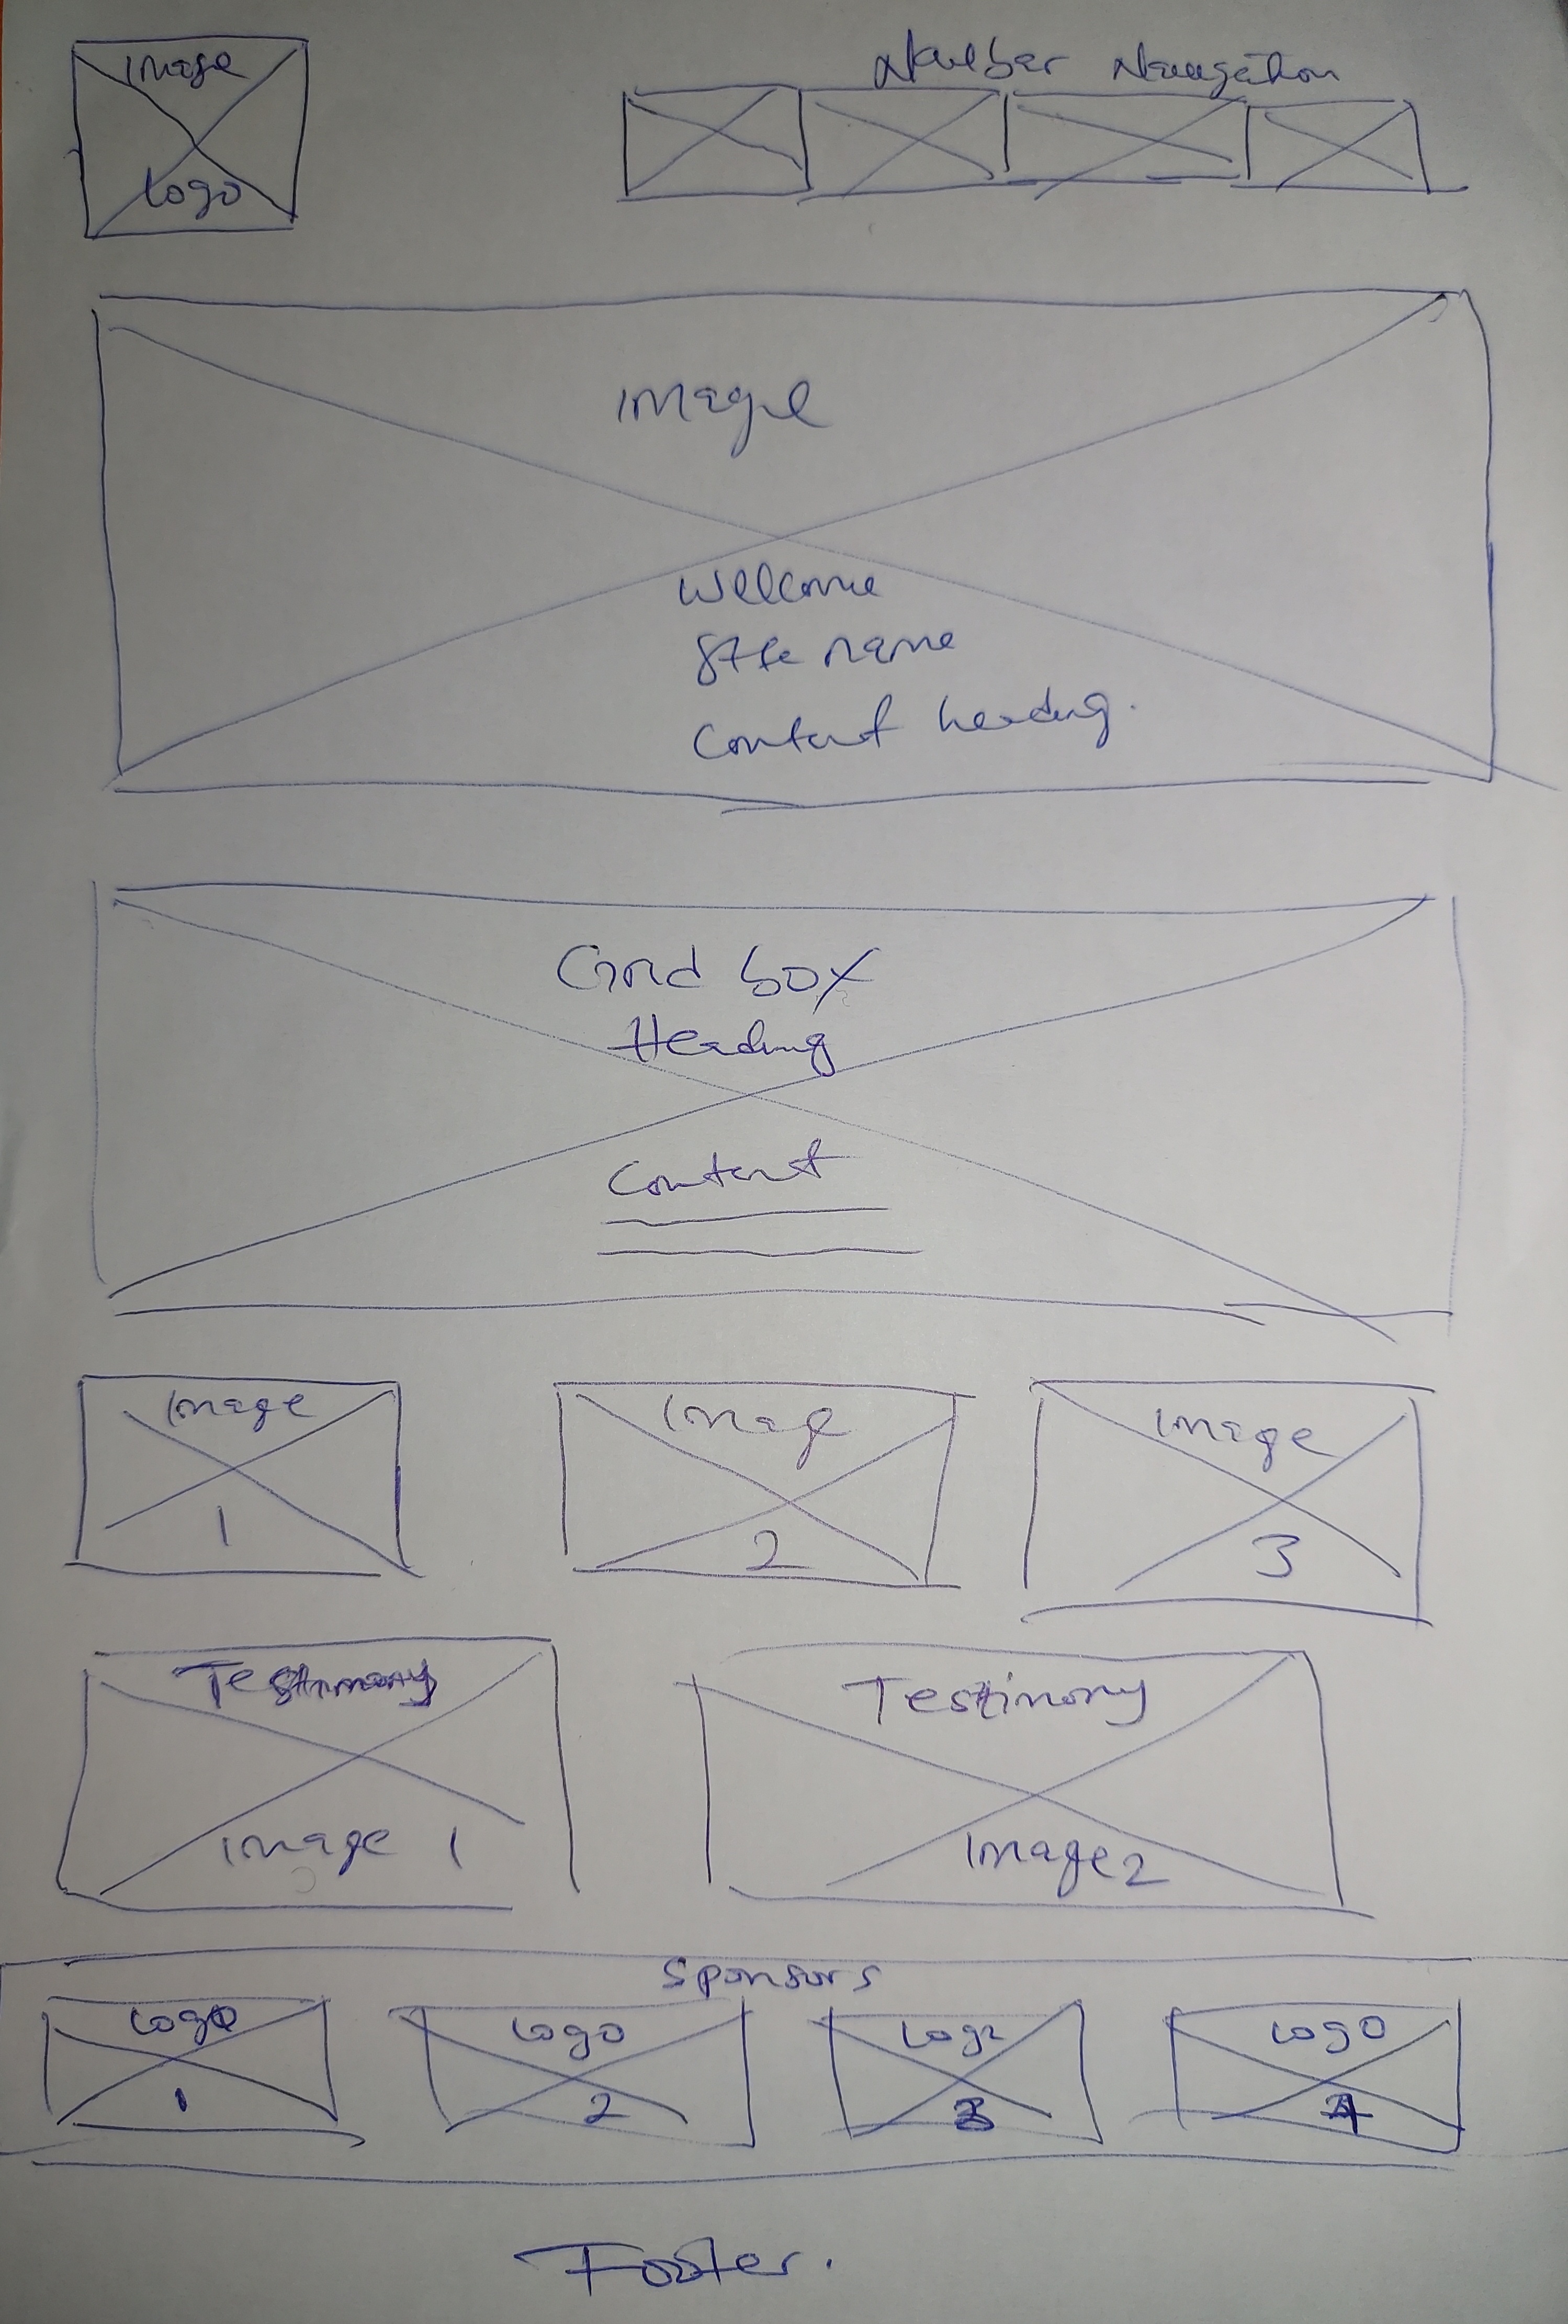 Image
Logo
Navbar Navigation
Image
Welcome
Site name
Content heading.
Grid box
Heading
Content
Image
1
Image
2
Image
3
Testimony
Image 1
Testimony
Image 2
Sponsors
Logo
1
Logo
2
Logo
3
Logo
4
Footer.